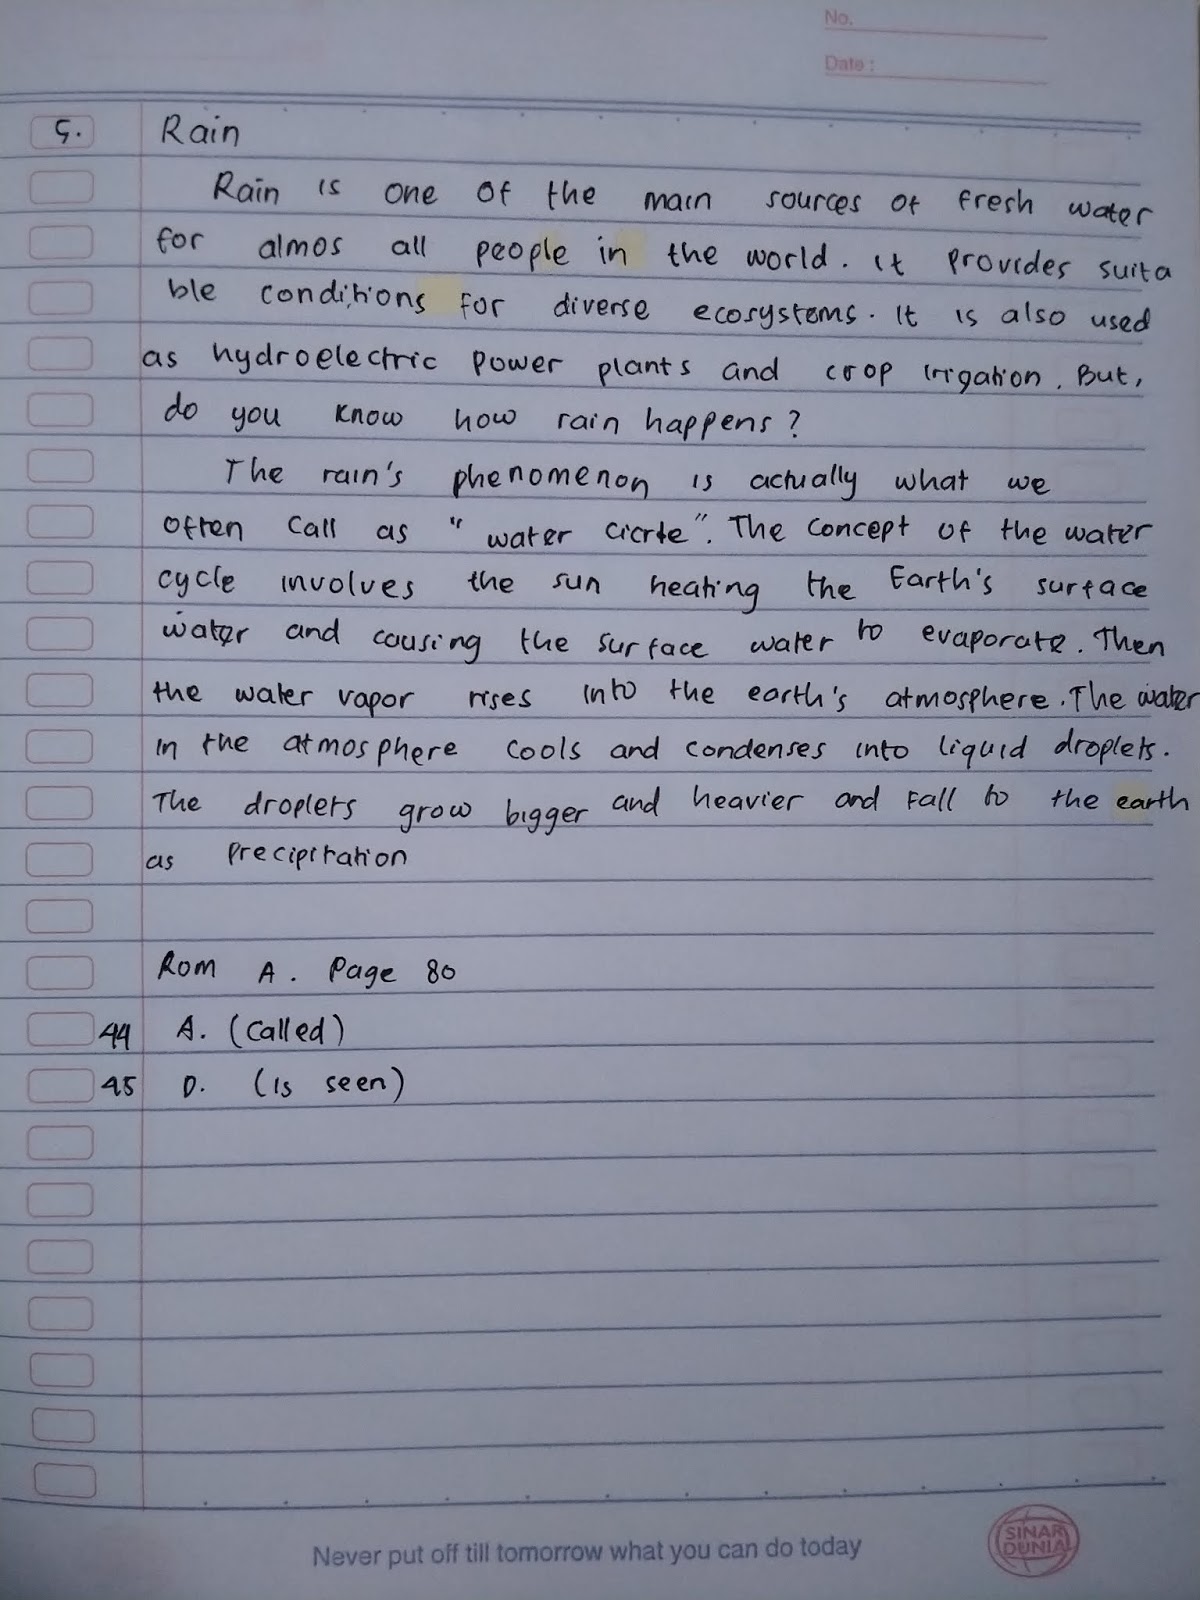 No.
Date :
5. Rain
Rain is one of the main sources of fresh water
for almos all people in the world. it provides suita
ble conditions for diverse ecosystems. It is also used
as hydroelectric power plants and crop irrigation. But,
do you know how rain happens?
The rain's phenomenon is actually what we
often call as " water cicrle". The concept of the water
cycle involves the sun heating the Earth's surface
water and causing the surface water to evaporate. Then
the water vapor rises into the earth's atmosphere. The water
in the atmosphere cools and condenses into liquid droplets.
The droplets grow bigger and heavier and fall to the earth
as precipitation
Rom A. Page 80
44 A. (called)
45 D. (is seen)
Never put off till tomorrow what you can do today
SINAR
DUNIA